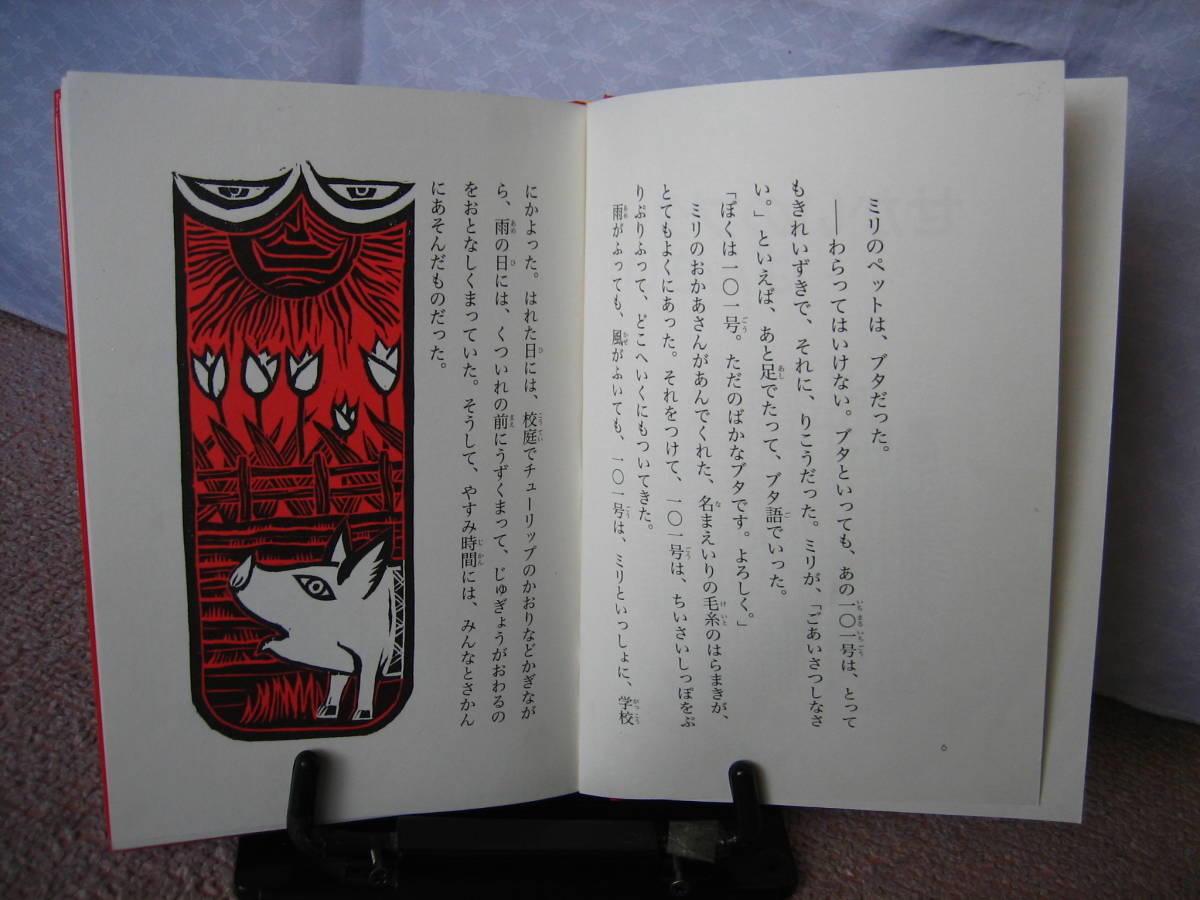 ミリのペットは、ブタだった。
──わらってはいけない。ブタといっても、あの一〇一号は、とって
もきれいずきで、それに、りこうだった。ミリが、「ごあいさつしなさ
い。」といえば、あと足でたって、ブタ語でいった。
「ぼくは一〇一号。ただのばかなブタです。よろしく。」
ミリのおかあさんがあんでくれた、名まえいりの毛糸のはらまきが、
とてもよくにあった。それをつけて、一〇一号は、ちいさいしっぽをぷ
りぷりふって、どこへいくにもついてきた。
雨がふっても、風がふいても、一〇一号は、ミリといっしょに、学校
6
にかよった。はれた日には、校庭でチューリップのかおりなどかぎなが
ら、雨の日には、くついれの前にうずくまって、じゅぎょうがおわるの
をおとなしくまっていた。そうして、やすみ時間には、みんなとさかん
にあそんだものだった。